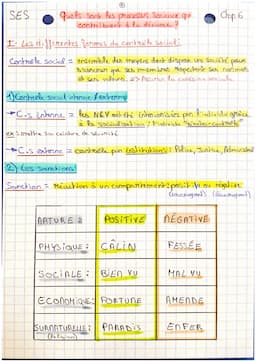 SES
Quels sont les processus sociaux qui
contribuent à la déviance ?
Chap 6
I - Les différentes formes de contrôle social.
Contrôle social = ensemble des moyens dont dispose une société pour
s'assurer que ses membres respectent ses normes
et ses valeurs → Assurer la cohésion sociale
1) Contrôle social interne / externe
→ C.s interne = les N&V ont été intériorisées par l'individu grâce
à la socialisation, l'individu "s'auto-contrôle"
ex : mettre sa ceinture de sécurité
→ C.s externe = contrôle par institutions : Police, Justice,
2) Les sanctions
Sanction = Réaction à un comportement, positif ou négatif
(encouragement) (découragement)
NATURE : POSITIVE NÉGATIVE
PHYSIQUE : CÂLIN FESSÉE
SOCIALE : BIEN VU MAL VU
ECONOMIQUE : FORTUNE AMENDE
SURNATURELLE : PARADIS ENFER
(Religion)